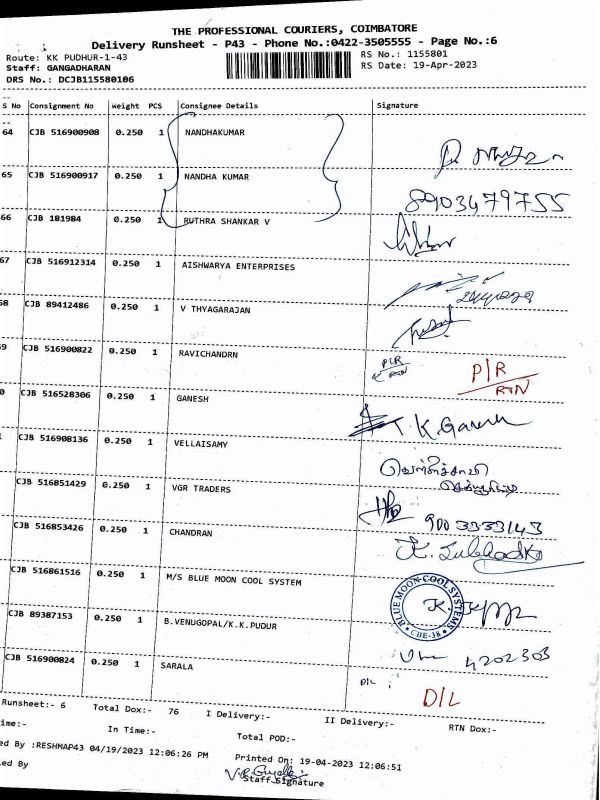 THE PROFESSIONAL COURIERS, COIMBATORE
Delivery Runsheet - P43 - Phone No.:0422-3505555 - Page No.:6
Route: KK PUDHUR-1-43
RS No.: 1155801
Staff: GANGADHARAN
RS Date: 19-Apr-2023
DRS No.: DCJB115580106
S No Consignment No Weight PCS Consignee Details Signature
64 CJB 516900908 0.250 1 NANDHAKUMAR
65 CJB 516900917 0.250 1 NANDHA KUMAR 8903479755
66 CJB 181984 0.250 1 RUTHRA SHANKAR V
67 CJB 516912314 0.250 1 AISHWARYA ENTERPRISES
68 CJB 89412486 0.250 1 V THYAGARAJAN
9 CJB 516900822 0.250 1 RAVICHANDRN P/R RTN P/R RTN
0 CJB 516528306 0.250 1 GANESH T. K. Ganesh
CJB 516908136 0.250 1 VELLAISAMY வெள்ளைச்சாமி
CJB 516851429 0.250 1 VGR TRADERS 9003333143
CJB 516853426 0.250 1 CHANDRAN
CJB 516861516 0.250 1 M/S BLUE MOON COOL SYSTEM BLUE MOON COOL SYSTEMS CBE-38
CJB 89387153 0.250 1 B.VENUGOPAL/K.K.PUDUR 4202303
CJB 516900824 0.250 1 SARALA D/L D/L
Runsheet:- 6 Total Dox:- 76 I Delivery:- II Delivery:- RTN Dox:-
ime:- In Time:- Total POD:-
ed By :RESHMAP43 04/19/2023 12:06:26 PM Printed On: 19-04-2023 12:06:51
ed By Staff Signature